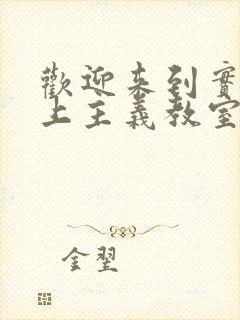 歡迎來到實
上主義教室
金翌